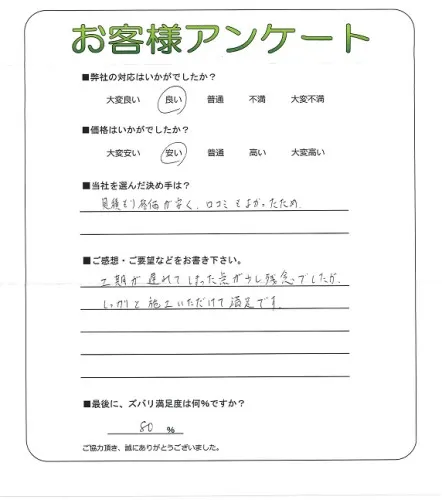 お客様アンケート
■弊社の対応はいかがでしたか?
大変良い 良い 普通 不満 大変不満
■価格はいかがでしたか?
大変安い 安い 普通 高い 大変高い
■当社を選んだ決め手は?
見積もり価格が安く、口コミもよかったため.
■ご感想・ご要望などをお書き下さい。
工期が遅れてしまった点が少し残念でしたが、
しっかりと施工いただけて満足です.
■最後に、ズバリ満足度は何%ですか?
80 %
ご協力頂き、誠にありがとうございました。